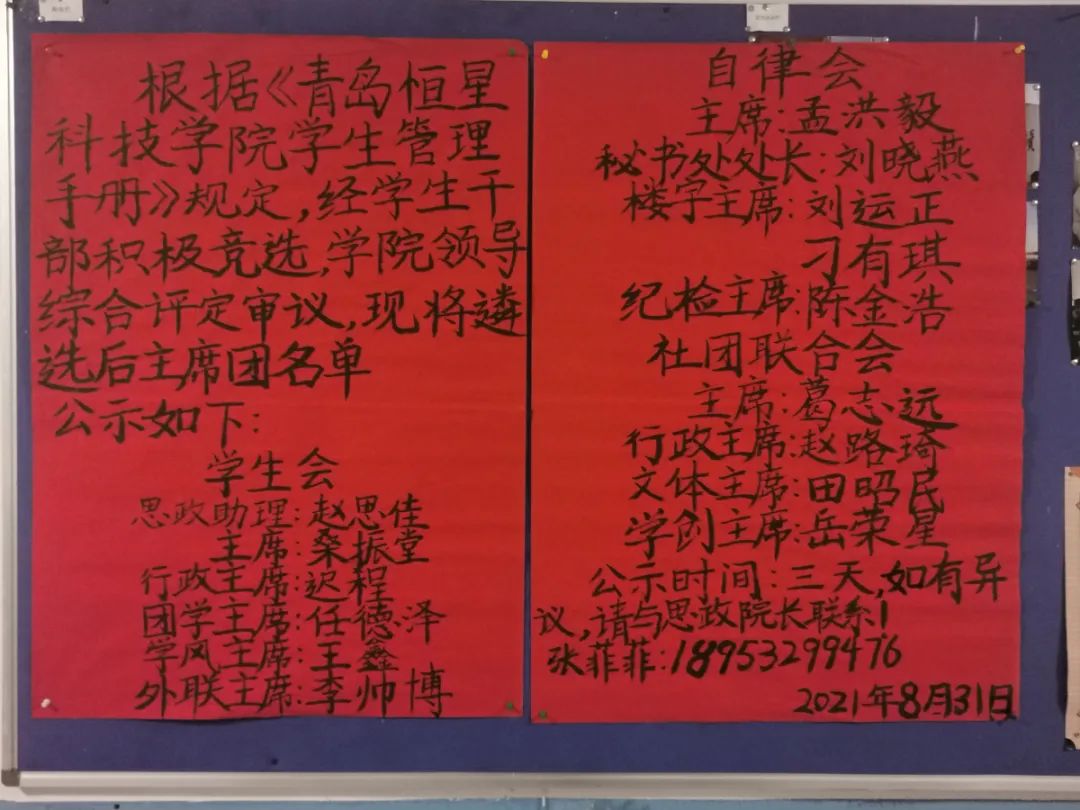 根据《青岛恒星
科技学院学生管理
手册》规定,经学生干
部积极竞选,学院领导
综合评定审议,现将遴
选后主席团名单
公示如下:
学生会
思政助理:赵思佳
主席:桑振堂
行政主席:迟程
团学主席:任德泽
学风主席:王鑫
外联主席:李帅博
自律会
主席:孟洪毅
秘书处处长:刘晓燕
楼宇主席:刘运正
刁有琪
纪检主席:陈金浩
社团联合会
主席:葛志远
行政主席:赵路琦
文体主席:田昭民
学创主席:岳荣星
公示时间:三天,如有异
议,请与思政院长联系!
张菲菲:18953299476
2021年8月31日